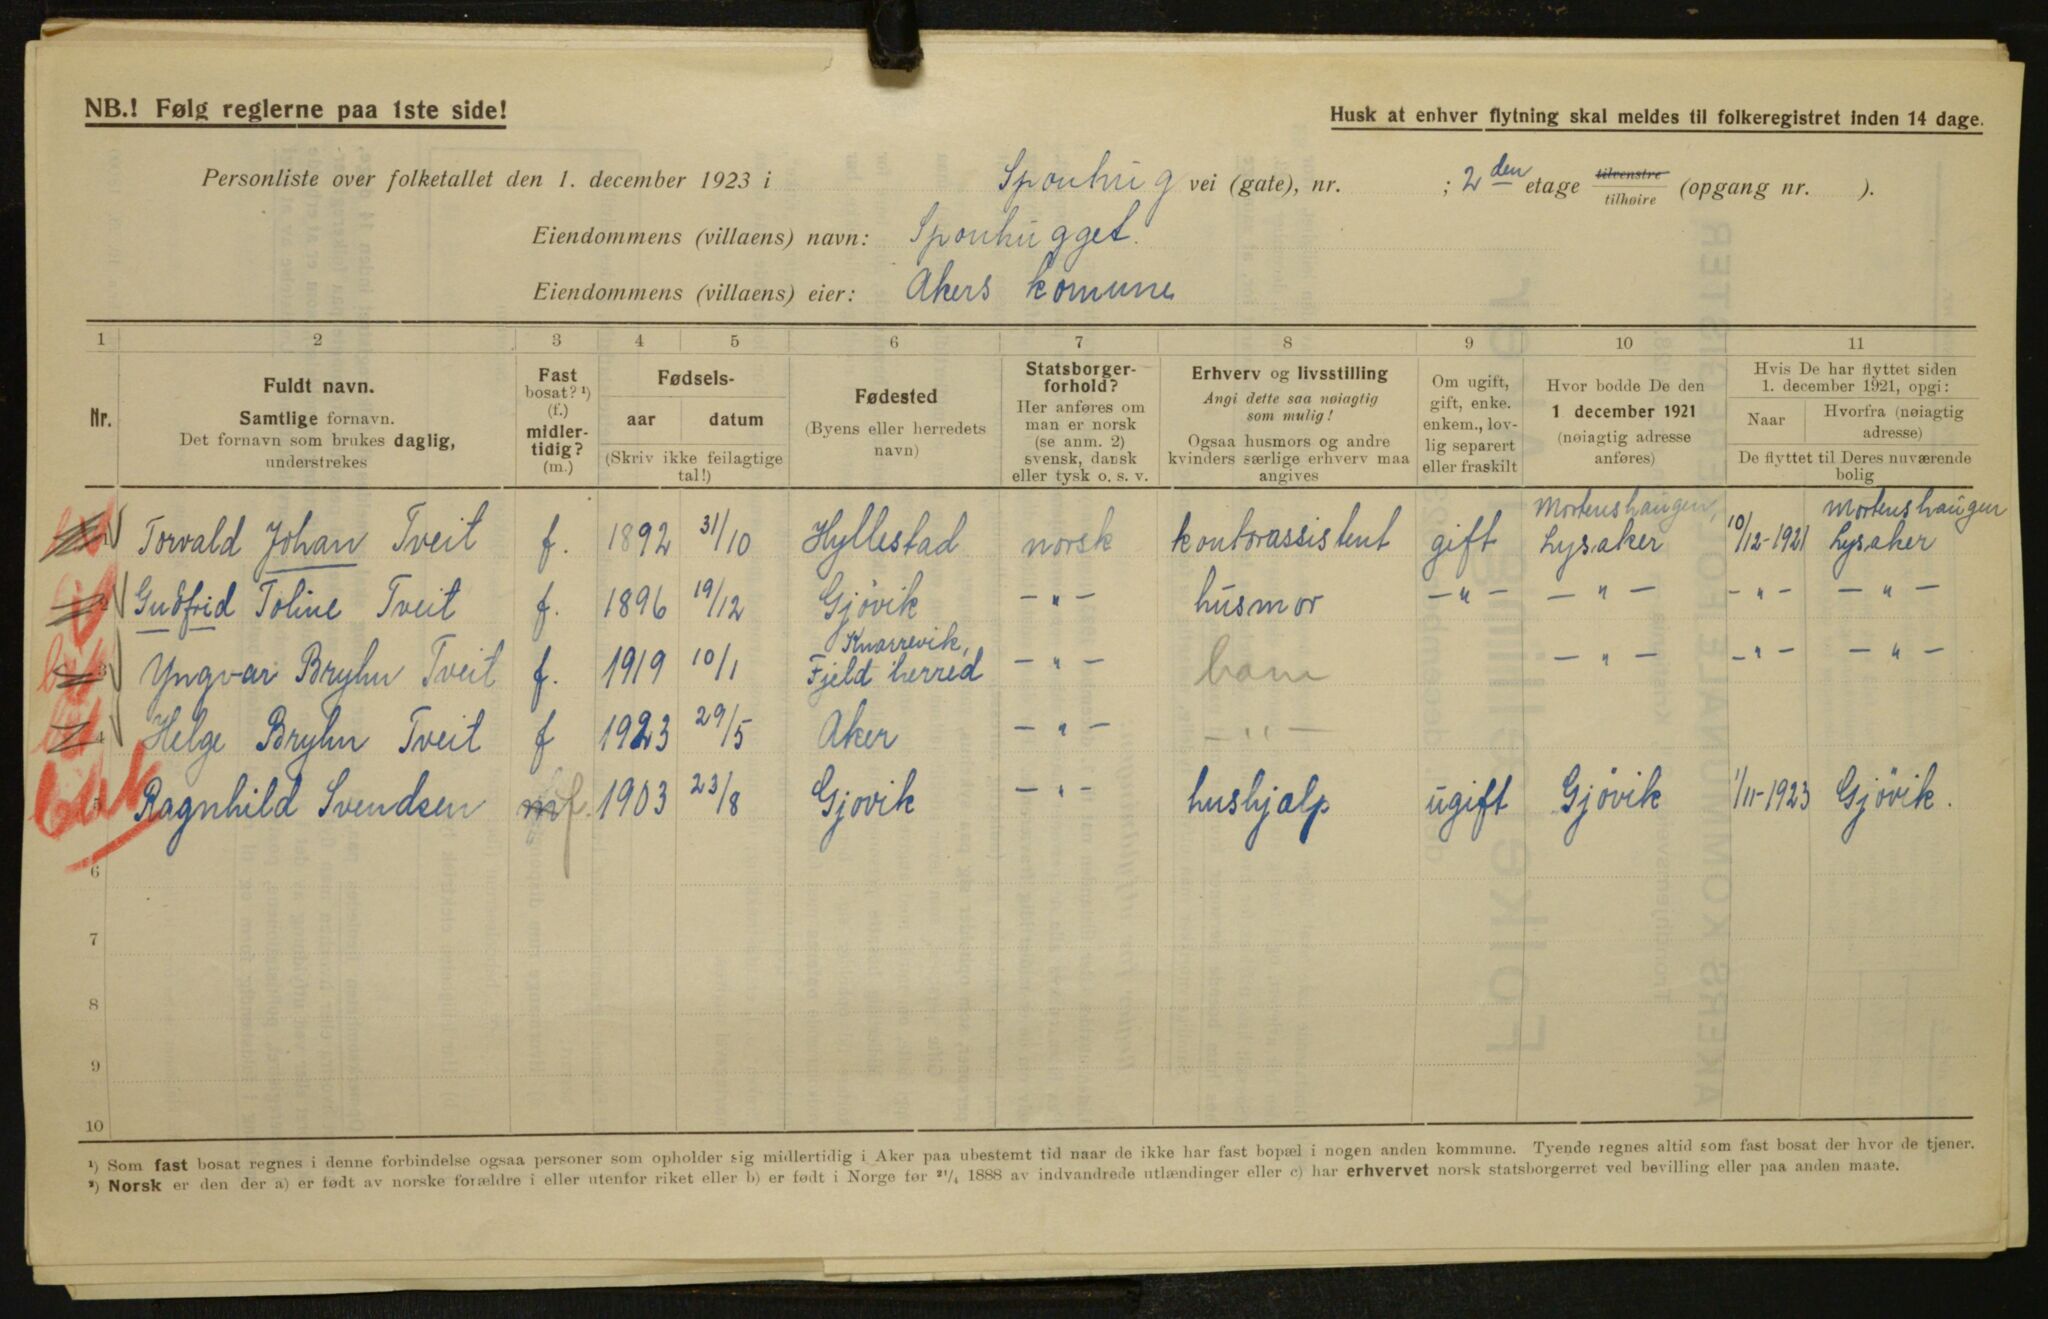 NB.! Følg reglerne paa 1ste side!
Husk at enhver flytning skal meldes til folkeregistret inden 14 dage.
Personliste over folketallet den 1. december 1923 i Sponhug vei (gate), nr. ; 2den etage tilvenstre / tilhøire (opgang nr. ).
Eiendommens (villaens) navn: Sponhugget.
Eiendommens (villaens) eier: Akers komune
1 2 3 4 5 6 7 8 9 10 11
Nr.
Fuldt navn.
Samtlige fornavn.
Det fornavn som brukes daglig,
understrekes
Fast
bosat? ¹)
(f.)
midler-
tidig?
(m.)
Fødsels-
aar datum
(Skriv ikke feilagtige
tal!)
Fødested
(Byens eller herredets
navn)
Statsborger-
forhold?
Her anføres om
man er norsk
(se anm. 2)
svensk, dansk
eller tysk o. s. v.
Erhverv og livsstilling
Angi dette saa nøiagtig
som mulig!
Ogsaa husmors og andre
kvinders særlige erhverv maa
angives
Om ugift,
gift, enke.
enkem., lov-
lig separert
eller fraskilt
Hvor bodde De den
1 december 1921
(nøiagtig adresse
anføres)
Hvis De har flyttet siden
1. december 1921, opgi:
Naar Hvorfra (nøiagtig
adresse)
De flyttet til Deres nuværende
bolig
1 Torvald Johan Tveit f. 1892 31/10 Hyllestad norsk kontorassistent gift Mortenshaugen, Lysaker 10/12-1921 Mortenshaugen Lysaker
2 Gudfrid Toline Tveit f. 1896 19/12 Gjøvik -"- husmor -"- -"- -"- -"-
3 Yngvar Bryhn Tveit f. 1919 10/1 Knarrevik, Fjeld herred -"- barn -"- -"- -"-
4 Helge Bryhn Tveit f 1923 29/5 Aker -"- -"-
5 Ragnhild Svendsen m f. 1903 23/8 Gjøvik -"- hushjælp ugift Gjøvik 1/11-1923 Gjøvik.
6
7
8
9
10
¹) Som fast bosat regnes i denne forbindelse ogsaa personer som opholder sig midlertidig i Aker paa ubestemt tid naar de ikke har fast bopæl i nogen anden kommune. Tyende regnes altid som fast bosat der hvor de tjener.
²) Norsk er den der a) er født av norske forældre i eller utenfor riket eller b) er født i Norge før 21/4 1888 av indvandrede utlændinger eller c) har erhvervet norsk statsborgerret ved bevilling eller paa anden maate.